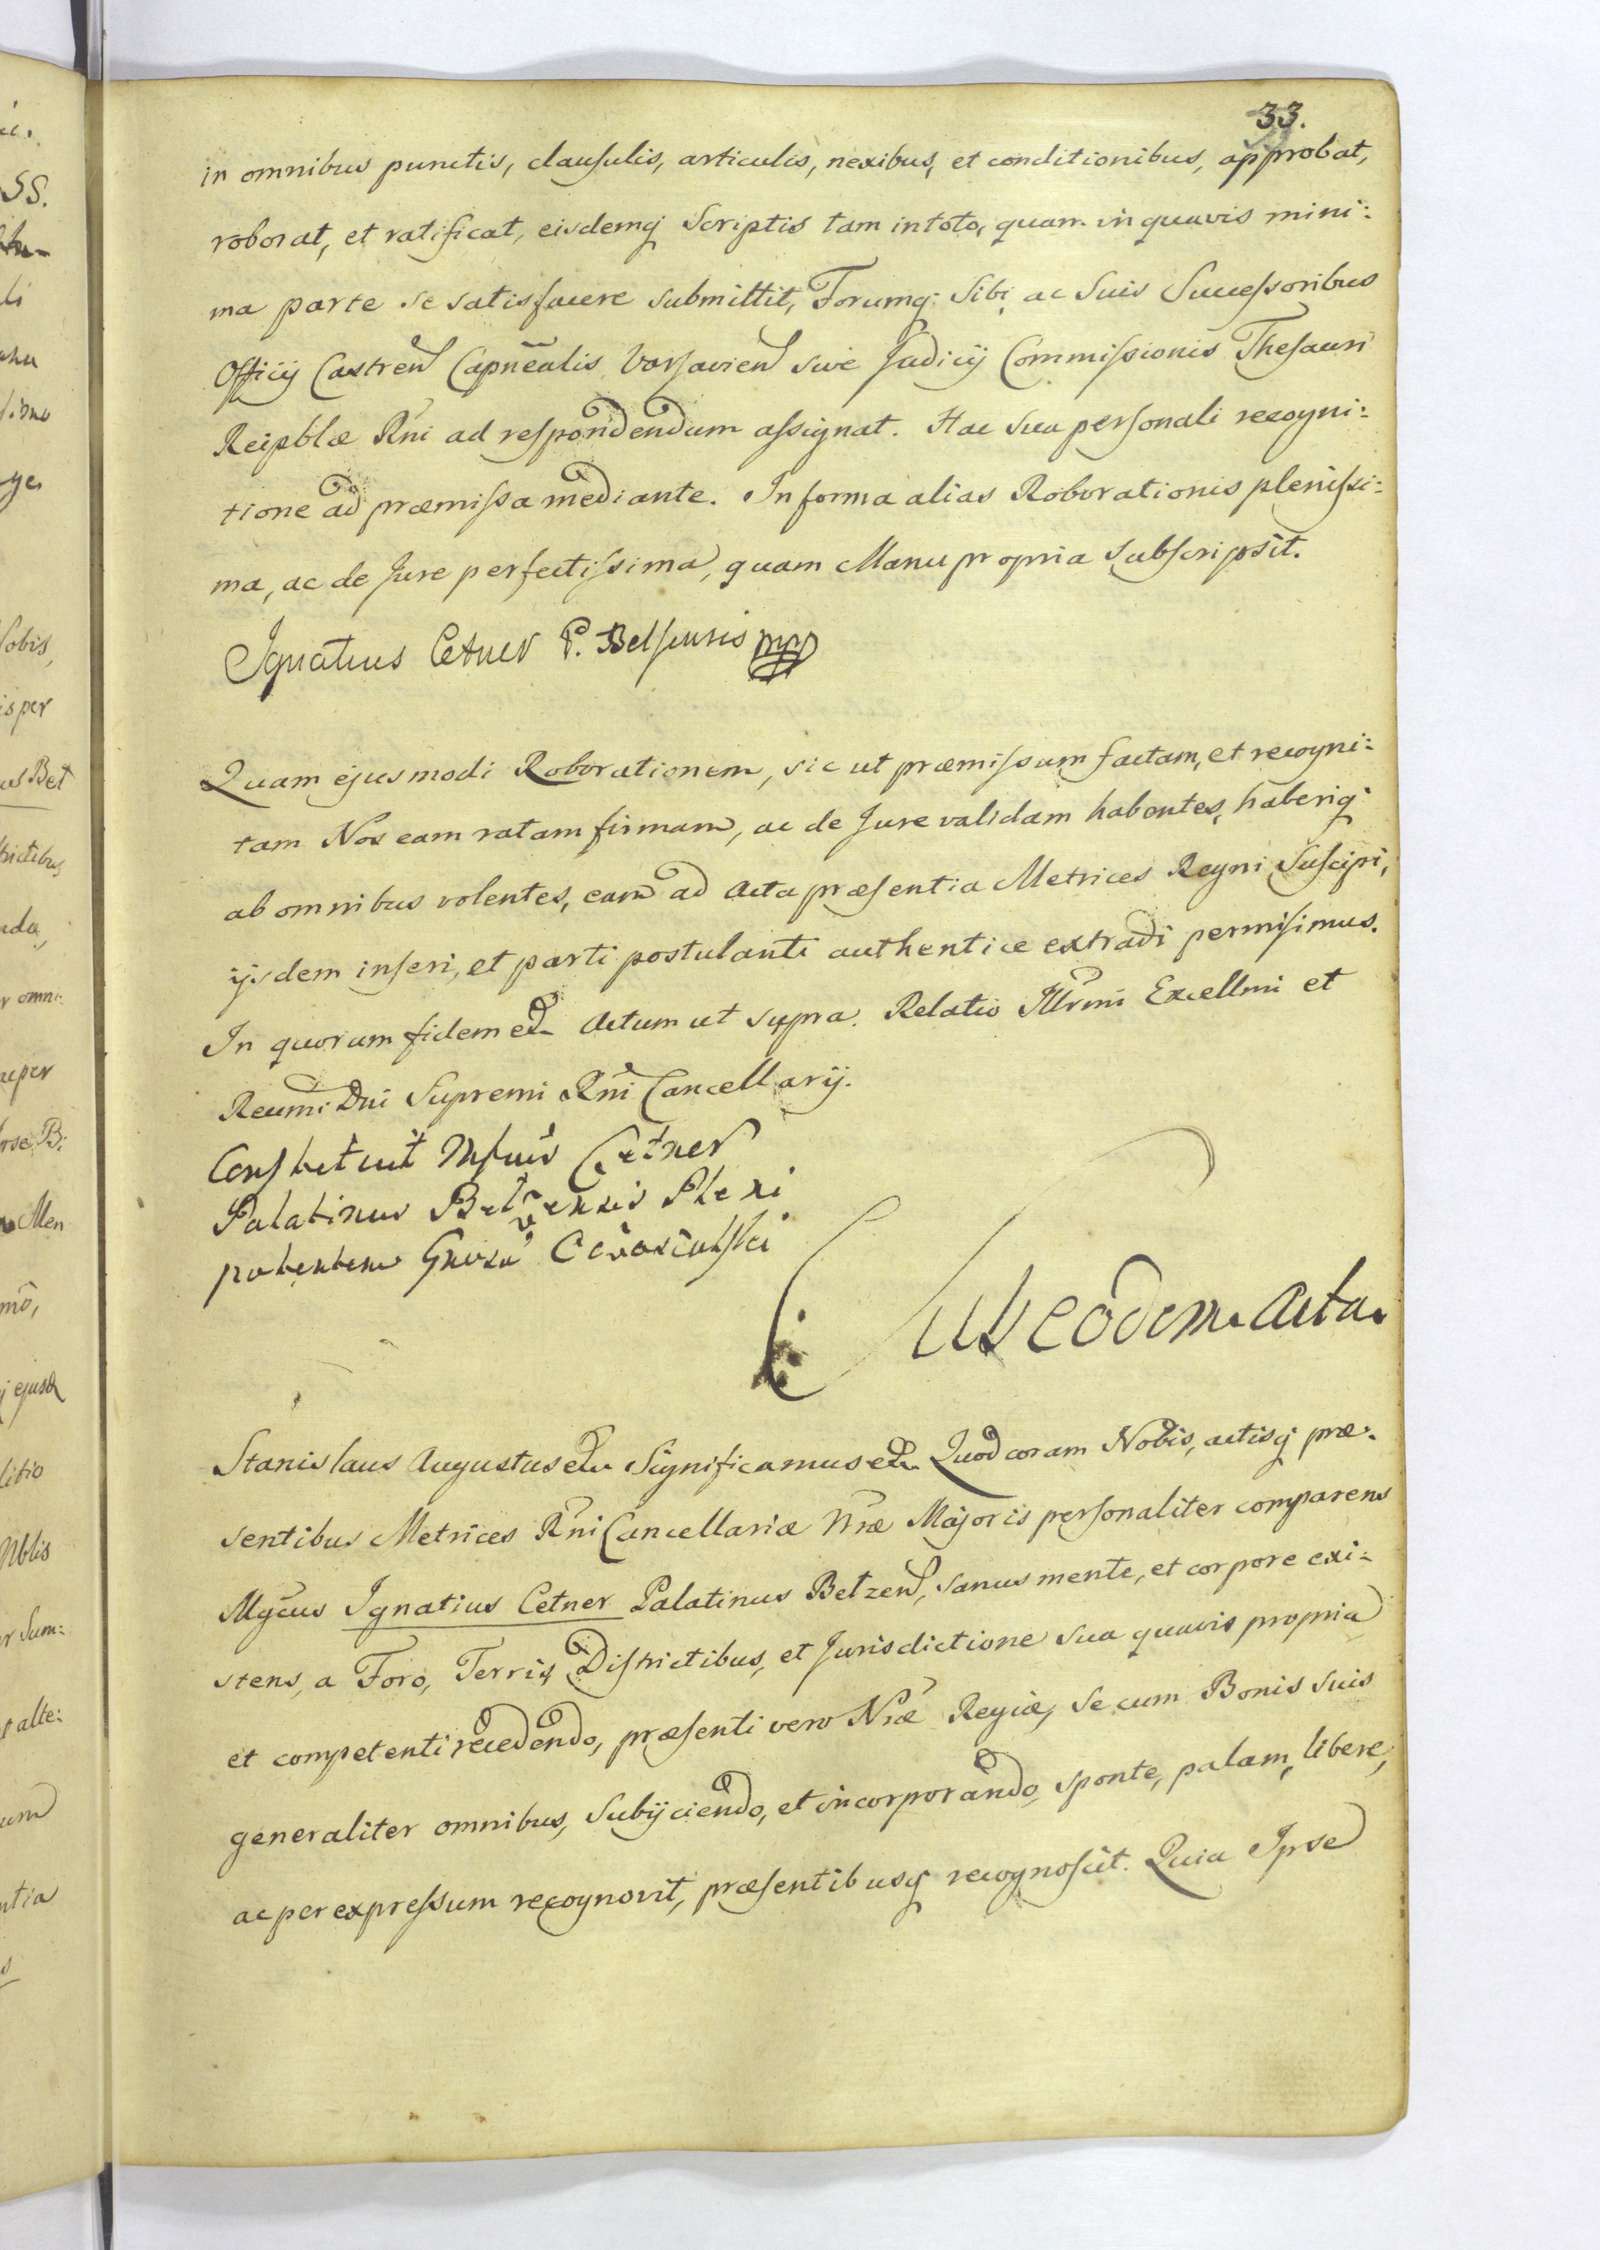 33.
in omnibus punctis, clausulis, articulis, nexibus, et conditionibus, approbat,
roborat, et ratificat, eisdemq Scriptis tam in toto, quam in quavis mini:
ma parte se satisfacere submittit, Forumq: Sibi, ac Suis Successoribus
Officij Castren Capnealis Varsavien sive Judicij Commissionis Thesauri
Reipblæ Rni ad respondendum assignat. Hac sua personali recogni:
tione ad præmissa mediante. In forma alias Roborationis plenissi:
ma, ac de Jure perfectissima, quam Manu propria Subscripsit.
Ignatius Cetner P. Belsensis mp
Quam ejusmodi Roborationem, sic ut præmissum factam, et recogni:
tam Nos eam ratam firmam, ac de Jure validam habentes, haberiq
ab omnibus volentes, eam ad Acta præsentia Metrices Regni Suscipi,
ijsdem inseri, et parti postulanti authentice extradi permisimus.
In quorum fidem etc Actum ut supra. Relatio Illrmi Excellmi et
Reumi Dni Supremi Rni Cancellarij.
Constituit Cetner
Palatinus Belzensis Pleni
potentem Gnosu
Sub eodem Actu.
Stanislaus Augustus etc Significamus etc Quod coram Nobis, actisq præ:
sentibus Metrices Rni Cancellariæ Nræ Majoris personaliter comparens
Mgcus Ignatius Cetner Palatinus Betzen, sanus mente, et corpore exi:
stens, a Foro, Terris, Districtibus, et Jurisdictione sua quavis propria
et competenti recedendo, præsenti vero Nræ Regiæ, se cum Bonis suis
generaliter omnibus, Subijciendo, et incorporando, sponte, palam, libere,
ac per expressum recognovit, præsentibusq recognoscit. Quia Ipse